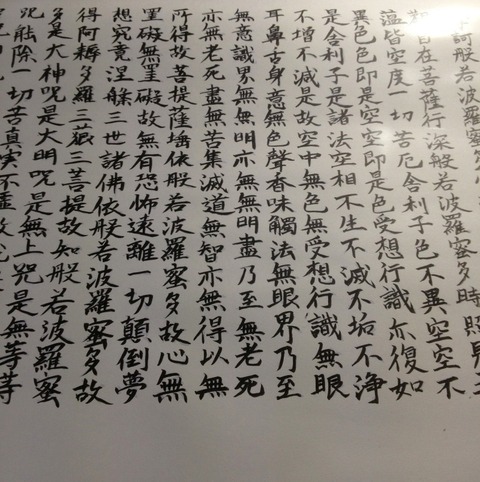 訶般若波羅蜜多心
自在菩薩行深般若波羅蜜多時照見
蘊皆空度一切苦厄舍利子色不異空空不
異色色即是空空即是色受想行識亦復如
是舍利子是諸法空相不生不滅不垢不淨
不增不減是故空中無色無受想行識無眼
耳鼻舌身意無色聲香味觸法無眼界乃至
無意識界無無明亦無無明盡乃至無老死
亦無老死盡無苦集滅道無智亦無得以無
所得故菩提薩埵依般若波羅蜜多故心無
罣礙無罣礙故無有恐怖遠離一切顛倒夢
想究竟涅槃三世諸佛依般若波羅蜜多故
得阿耨多羅三藐三菩提故知般若波羅蜜
多是大神咒是大明咒是無上咒是無等等
咒能除一切苦真實不虛故